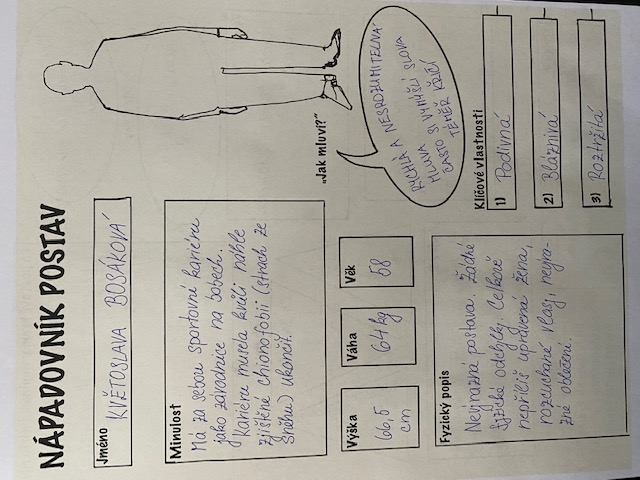 NÁPADOVNÍK POSTAV
Jméno
KVĚTOSLAVA BOSÁKOVÁ
Minulost
Má za sebou sportovní kariéru
jako závodnice na bobech.
Kariéru musela kvůli náhle
zjištěné chionofobii (strach ze
sněhu) ukončit.
Výška
166,5
cm
Váha
64 kg
Věk
58
Fyzický popis
Nevýrazná postava. Žádné
fyzické odchylky. Celkově
nepříliš upravená žena,
rozcuchané vlasy, nevýra-
zné oblečení.
„Jak mluví?"
RYCHLÁ A NESROZUMITELNÁ
MLUVA. VYMÝŠLÍ SLOVA
ČASTO SI
TÉMĚŘ KŘIČÍ
Klíčové vlastnosti
1) Podivná
2) Bláznivá
3) Roztržitá